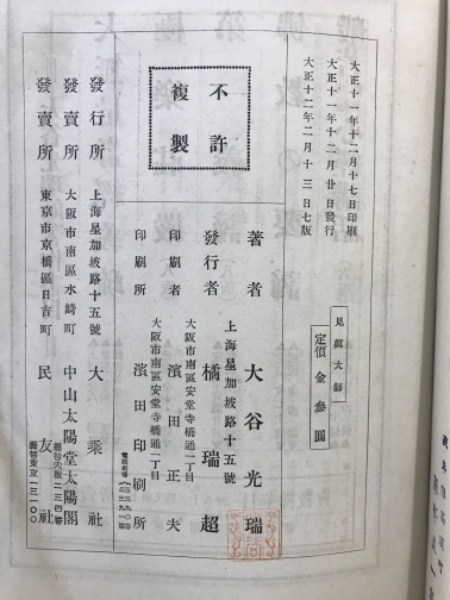 大正十一年十二月十七日印刷
大正十一年十二月廿日發行
大正十二年二月十三日七版
見眞大師
定價金參圓
不許
複製
著者 大谷光瑞
上海星加坡路十五號
發行者 橘瑞超
大阪市南區安堂寺橋通一丁目
印刷者 濱田正夫
大阪市南區安堂寺橋通一丁目
印刷所 濱田印刷所
發行所 上海星加坡路十五號 大乘社
發賣所 大阪市南區水崎町 中山太陽堂太陽閣
發賣所 東京市京橋區日吉町 民友社
振替東京一三一〇〇